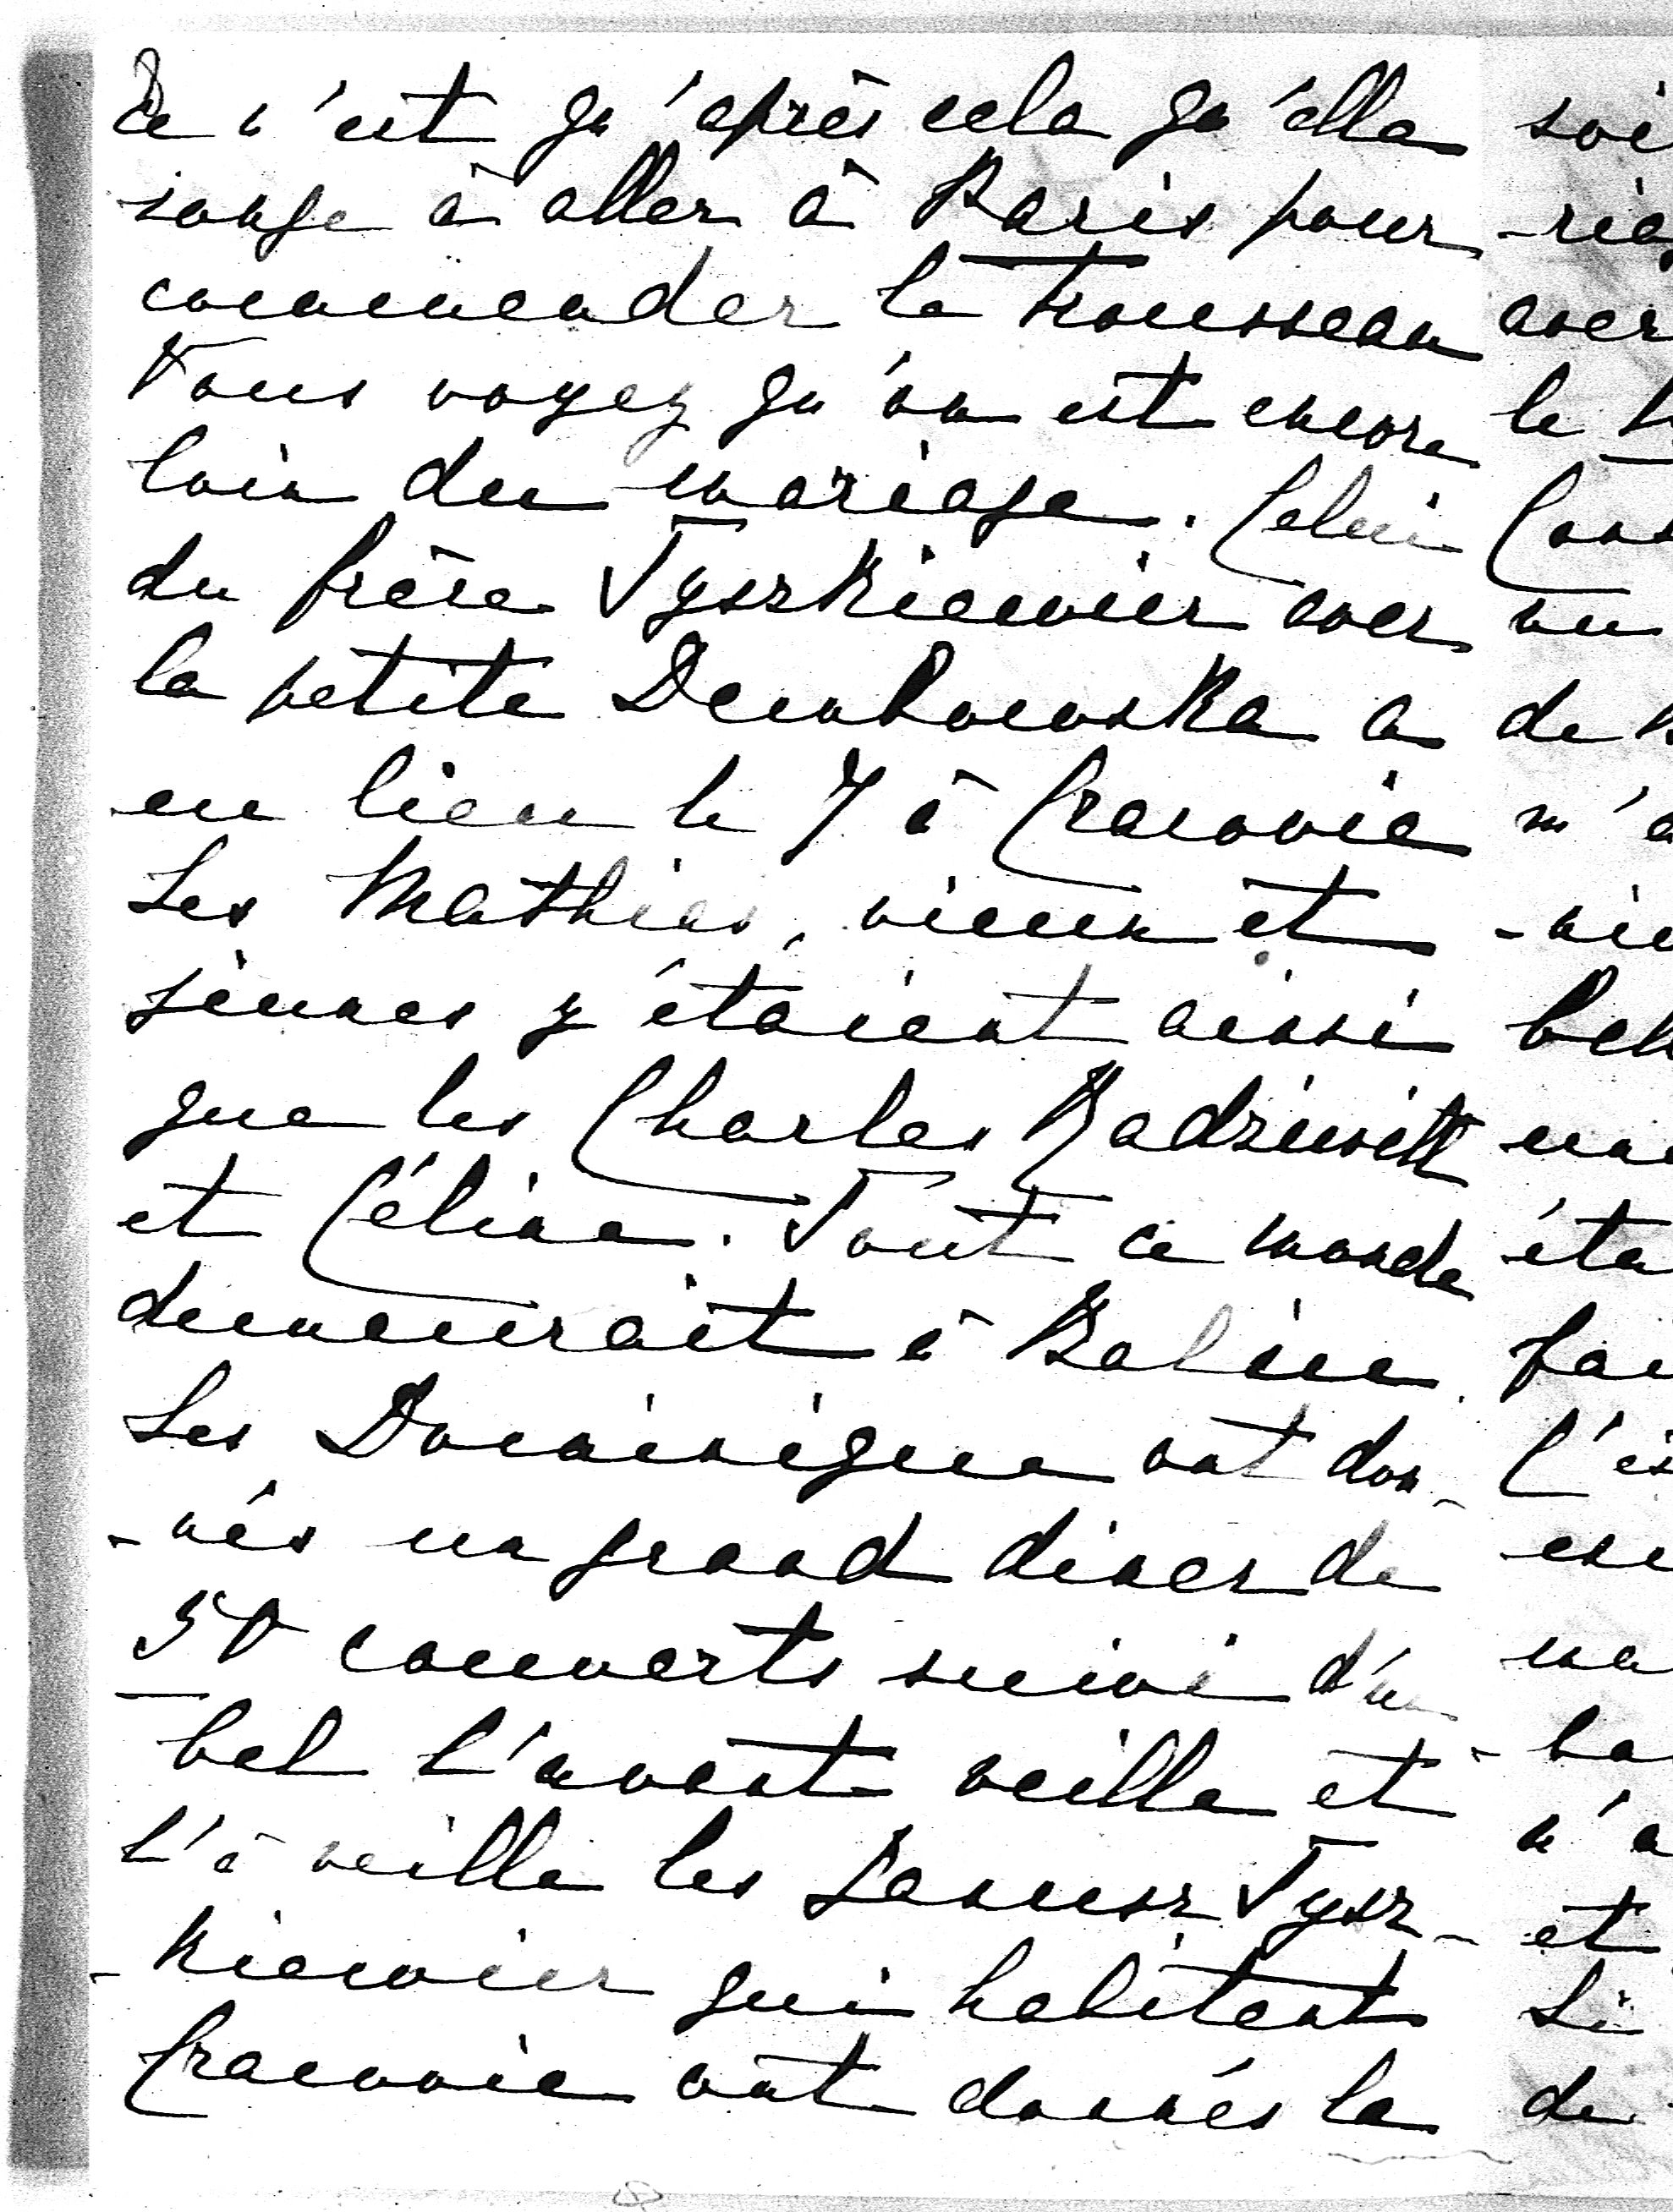 Ce n'est qu'après cela qu'elle
songe à aller à Paris pour
commender le trousseau
Vous voyez qu'on est encore
loin du mariage. Celui
du frère Tyszkiewicz avec
la petite Dembowska a
eu lieu le 7 à Cracovie
Les Mathias, vieux et
jeunes y étaient ainsi
que les Charles Radziwill
et Céline. Tout ce monde
demeurait à Balice.
Les Dominique ont don-
-nés un grand diner de
50 couverts suivi d'un
bal l'avant veille et
l'à veille les Janusz Tysz-
-kiewicz qui habitent
Cracovie ont donnés la
soi
-ria
avec
le
de
m'a
-vie
bel
une
éta
fai
C'es
ba
n'a
et
Si
de